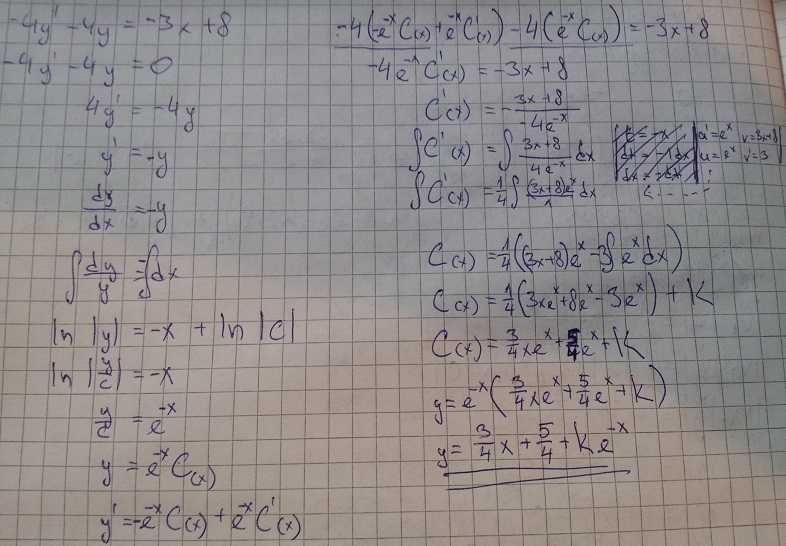 -4y' - 4y = -3x + 8
-4y' - 4y = 0
4y' = -4y
y' = -y
dy/dx = -y
∫ dy/y = -∫ dx
ln |y| = -x + ln |C|
ln |y/C| = -x
y/C = e^-x
y = e^-x C(x)
y' = -e^-x C(x) + e^-x C'(x)
-4(-e^-x C(x) + e^-x C'(x)) - 4(e^-x C(x)) = -3x + 8
-4e^-x C'(x) = -3x + 8
C'(x) = - 3x + 8 / -4e^-x
∫ C'(x) = ∫ 3x + 8 / 4e^-x dx
∫ C'(x) = 1/4 ∫ (3x + 8)e^x / 1 dx
u' = e^x v = 3x + 8
u = e^x v' = 3
C(x) = 1/4 ((3x + 8)e^x - 3∫ e^x dx)
C(x) = 1/4 (3xe^x + 8e^x - 3e^x) + K
C(x) = 3/4 xe^x + 5/4 e^x + K
y = e^-x (3/4 xe^x + 5/4 e^x + K)
y = 3/4 x + 5/4 + K e^-x